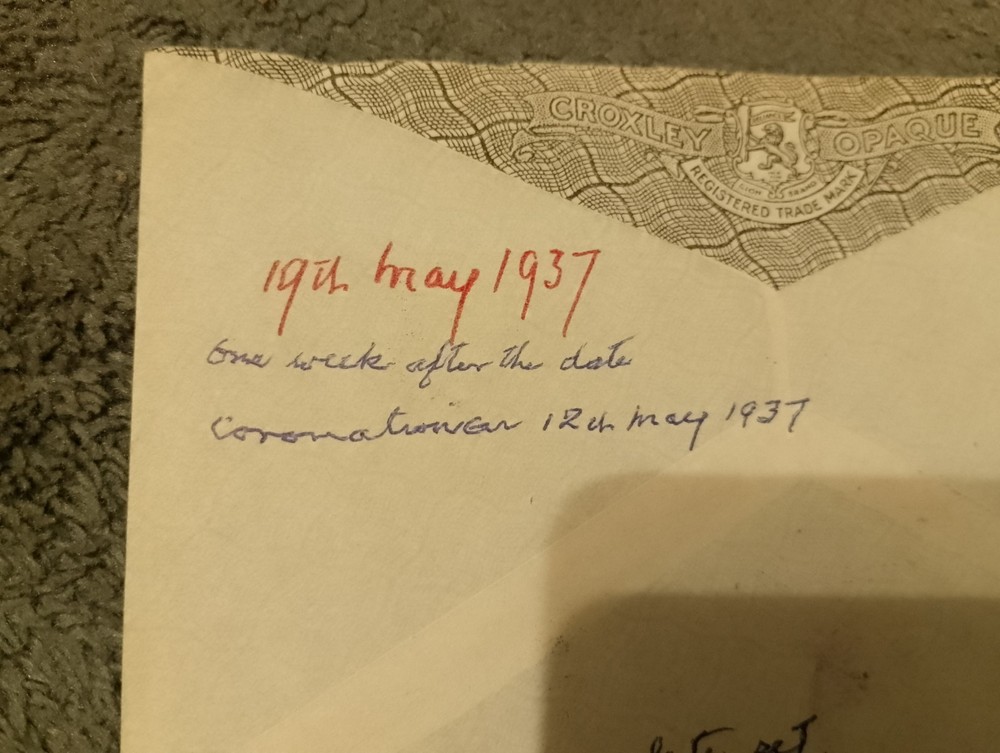 CROXLEY OPAQUE
LION BRAND
REGISTERED TRADE MARK
19th May 1937
One week after the date
12th May 1937
set